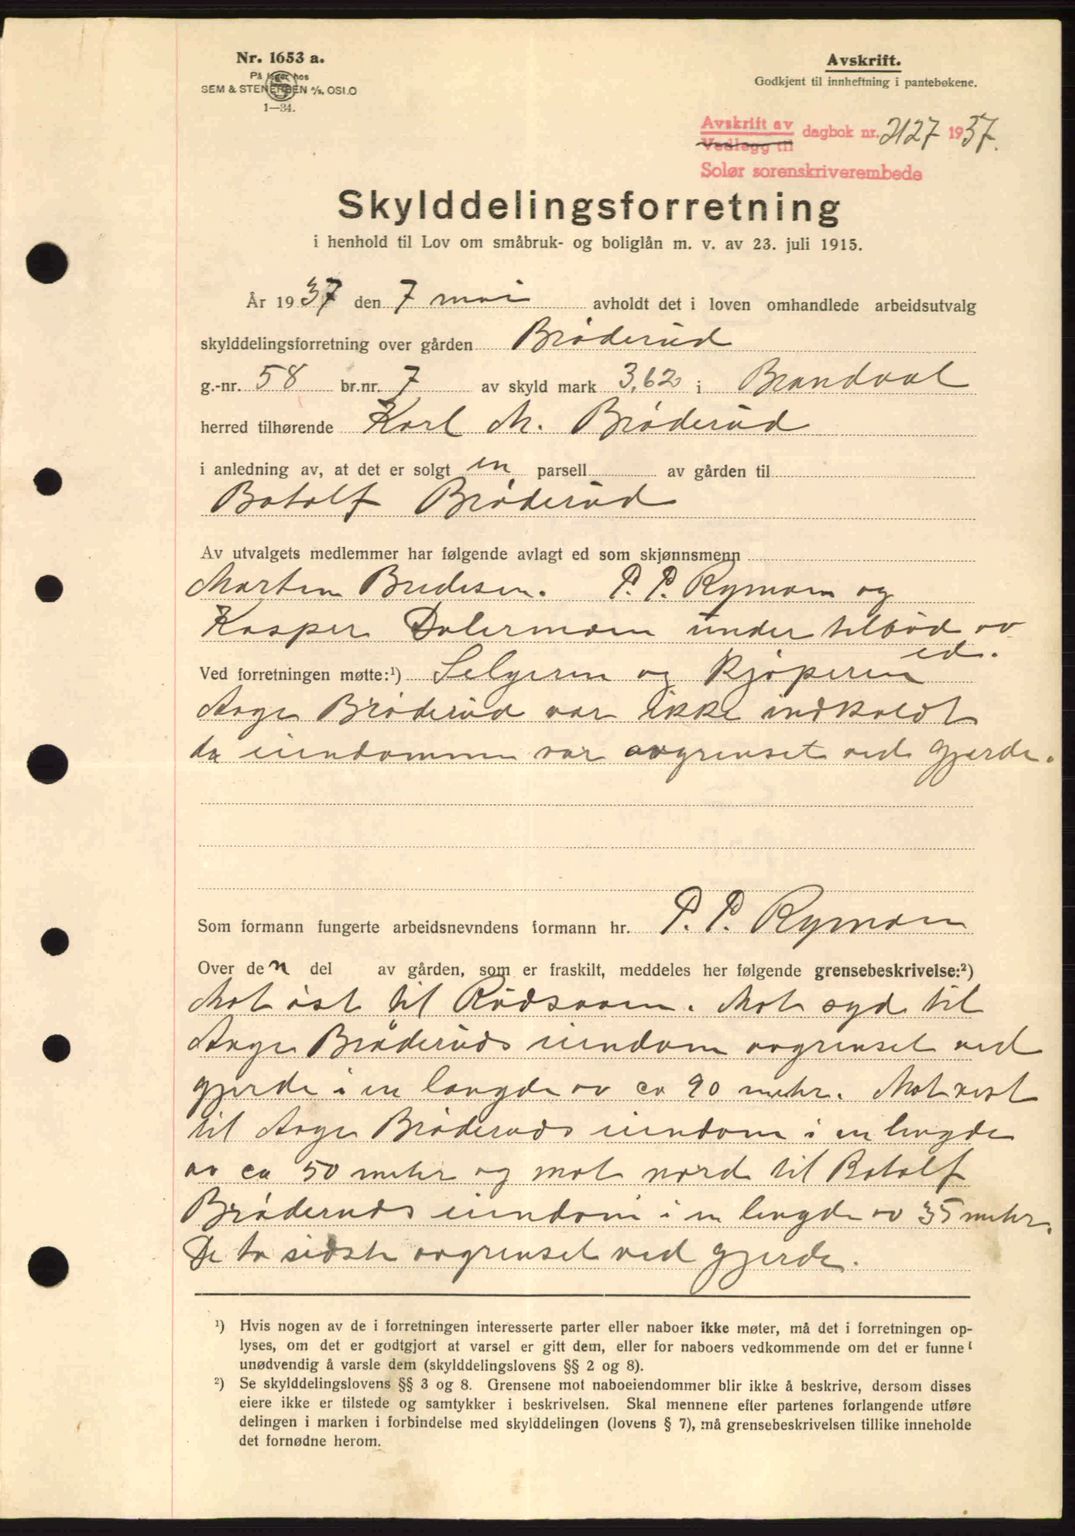 Nr. 1653 a.
På lager hos
SEM & STENERSEN A/S, OSLO
1—34.
Avskrift.
Godkjent til innheftning i pantebøkene.
Avskrift av
Vedlegg til
dagbok nr. 2127 1937.
Solør sorenskriverembede
Skylddelingsforretning
i henhold til Lov om småbruk- og boliglån m. v. av 23. juli 1915.
År 1937 den 7 mai avholdt det i loven omhandlede arbeidsutvalg
skylddelingsforretning over gården Brøderud
g.-nr. 58 br.nr. 7 av skyld mark 3,62 i Brandval
herred tilhørende Karl M. Brøderud
i anledning av, at det er solgt en parsell av gården til
Botolf Brøderud
Av utvalgets medlemmer har følgende avlagt ed som skjønnsmenn
Martin Bredesen. P. P. Rymoen og
Kasper Dolermoen under tilbud av
ed.
Ved forretningen møtte:¹) Selgeren og kjøperen
Aage Brøderud var ikke indkaldt
da eiendommen var avgrenset ved gjerde.
Som formann fungerte arbeidsnevndens formann hr. P. P. Rymoen
Over den del av gården, som er fraskilt, meddeles her følgende grensebeskrivelse:²)
Mot øst til Rødsaaen. Mot syd til
Aage Brøderuds eiendom avgrenset ved
gjerde i en længde av ca 90 meter. Mot vest
til Aage Brøderuds eiendom i en længde
av ca 50 meter og mot nord til Botolf
Brøderuds eiendom i en længde av 35 meter.
De to sidste avgrenset ved gjerde.
¹) Hvis nogen av de i forretningen interesserte parter eller naboer ikke møter, må det i forretningen op-
lyses, om det er godtgjort at varsel er gitt dem, eller for naboers vedkommende om det er funnet
unødvendig å varsle dem (skylddelingslovens §§ 2 og 8).
²) Se skylddelingslovens §§ 3 og 8. Grensene mot naboeiendommer blir ikke å beskrive, dersom disses
eiere ikke er tilstede og samtykker i beskrivelsen. Skal mennene efter partenes forlangende utføre
delingen i marken i forbindelse med skylddelingen (lovens § 7), må grensebeskrivelsen tillike inneholde
det fornødne herom.